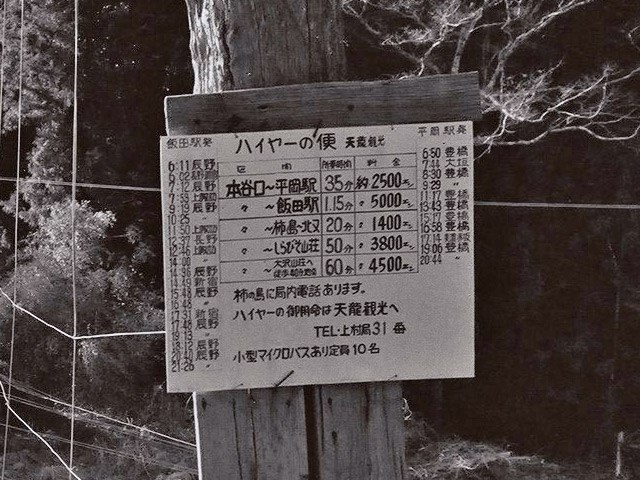 飯田駅発
6:11 辰野
7:12 辰野
9:19 辰野
10:25 〃
14:00 〃
14:36 辰野
14:49 新宿
15:48 辰野
16:48 〃
17:31 新宿
17:48 辰野
19:13 〃
18:12 辰野
20:40 辰野
21:26 〃
ハイヤーの便 天龍観光
区間 所要時間 料金
本谷口〜平岡駅 35分 約2500エン
〃 〜飯田駅 1.15分 〃 5000エン
〃 〜柿島・北又 20分 〃 1400エン
〃 〜しらびそ山荘 50分 〃 3800エン
〃 大沢山荘へ 徒歩40分地点 60分 〃 4500エン
柿の島に局内電話あります。
ハイヤーの御用命は天龍観光へ
TEL・上村局31番
小型マイクロバスあり定員10名
平岡駅発
6:50 豊橋
7:44 大垣
8:30 豊橋
9:29 〃
11:17 豊橋
13:43 豊橋
15:17 豊橋
16:58 豊橋
19:06 豊橋
20:44 〃